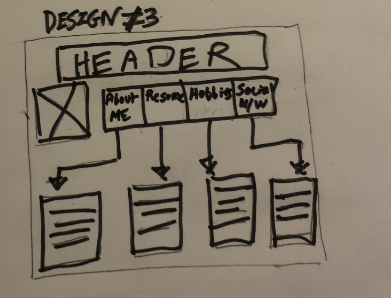 DESIGN #3
HEADER
About ME
Resume
Hobbies
Social N/W